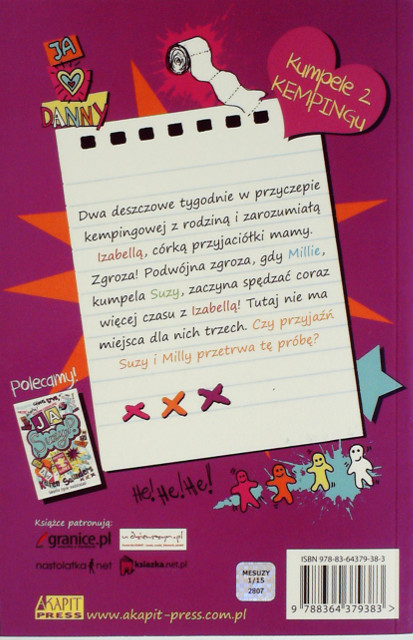 JA
DANNY
Kumpele z
KEMPINGu
Dwa deszczowe tygodnie w przyczepie
kempingowej z rodziną i zarozumiałą
Izabellą, córką przyjaciółki mamy.
Zgroza! Podwójna zgroza, gdy Millie,
kumpela Suzy, zaczyna spędzać coraz
więcej czasu z Izabellą! Tutaj nie ma
miejsca dla nich trzech. Czy przyjaźń
Suzy i Milly przetrwa tę próbę?
Polecamy!
JA
Suzy P
He! He! He!
Książce patronują:
granice.pl
nastolatka net
książka.net.pl
MESUZY
1/15
2807
ISBN 978-83-64379-38-3
9 788364 379383 >
AKAPIT
PRESS
www.akapit-press.com.pl